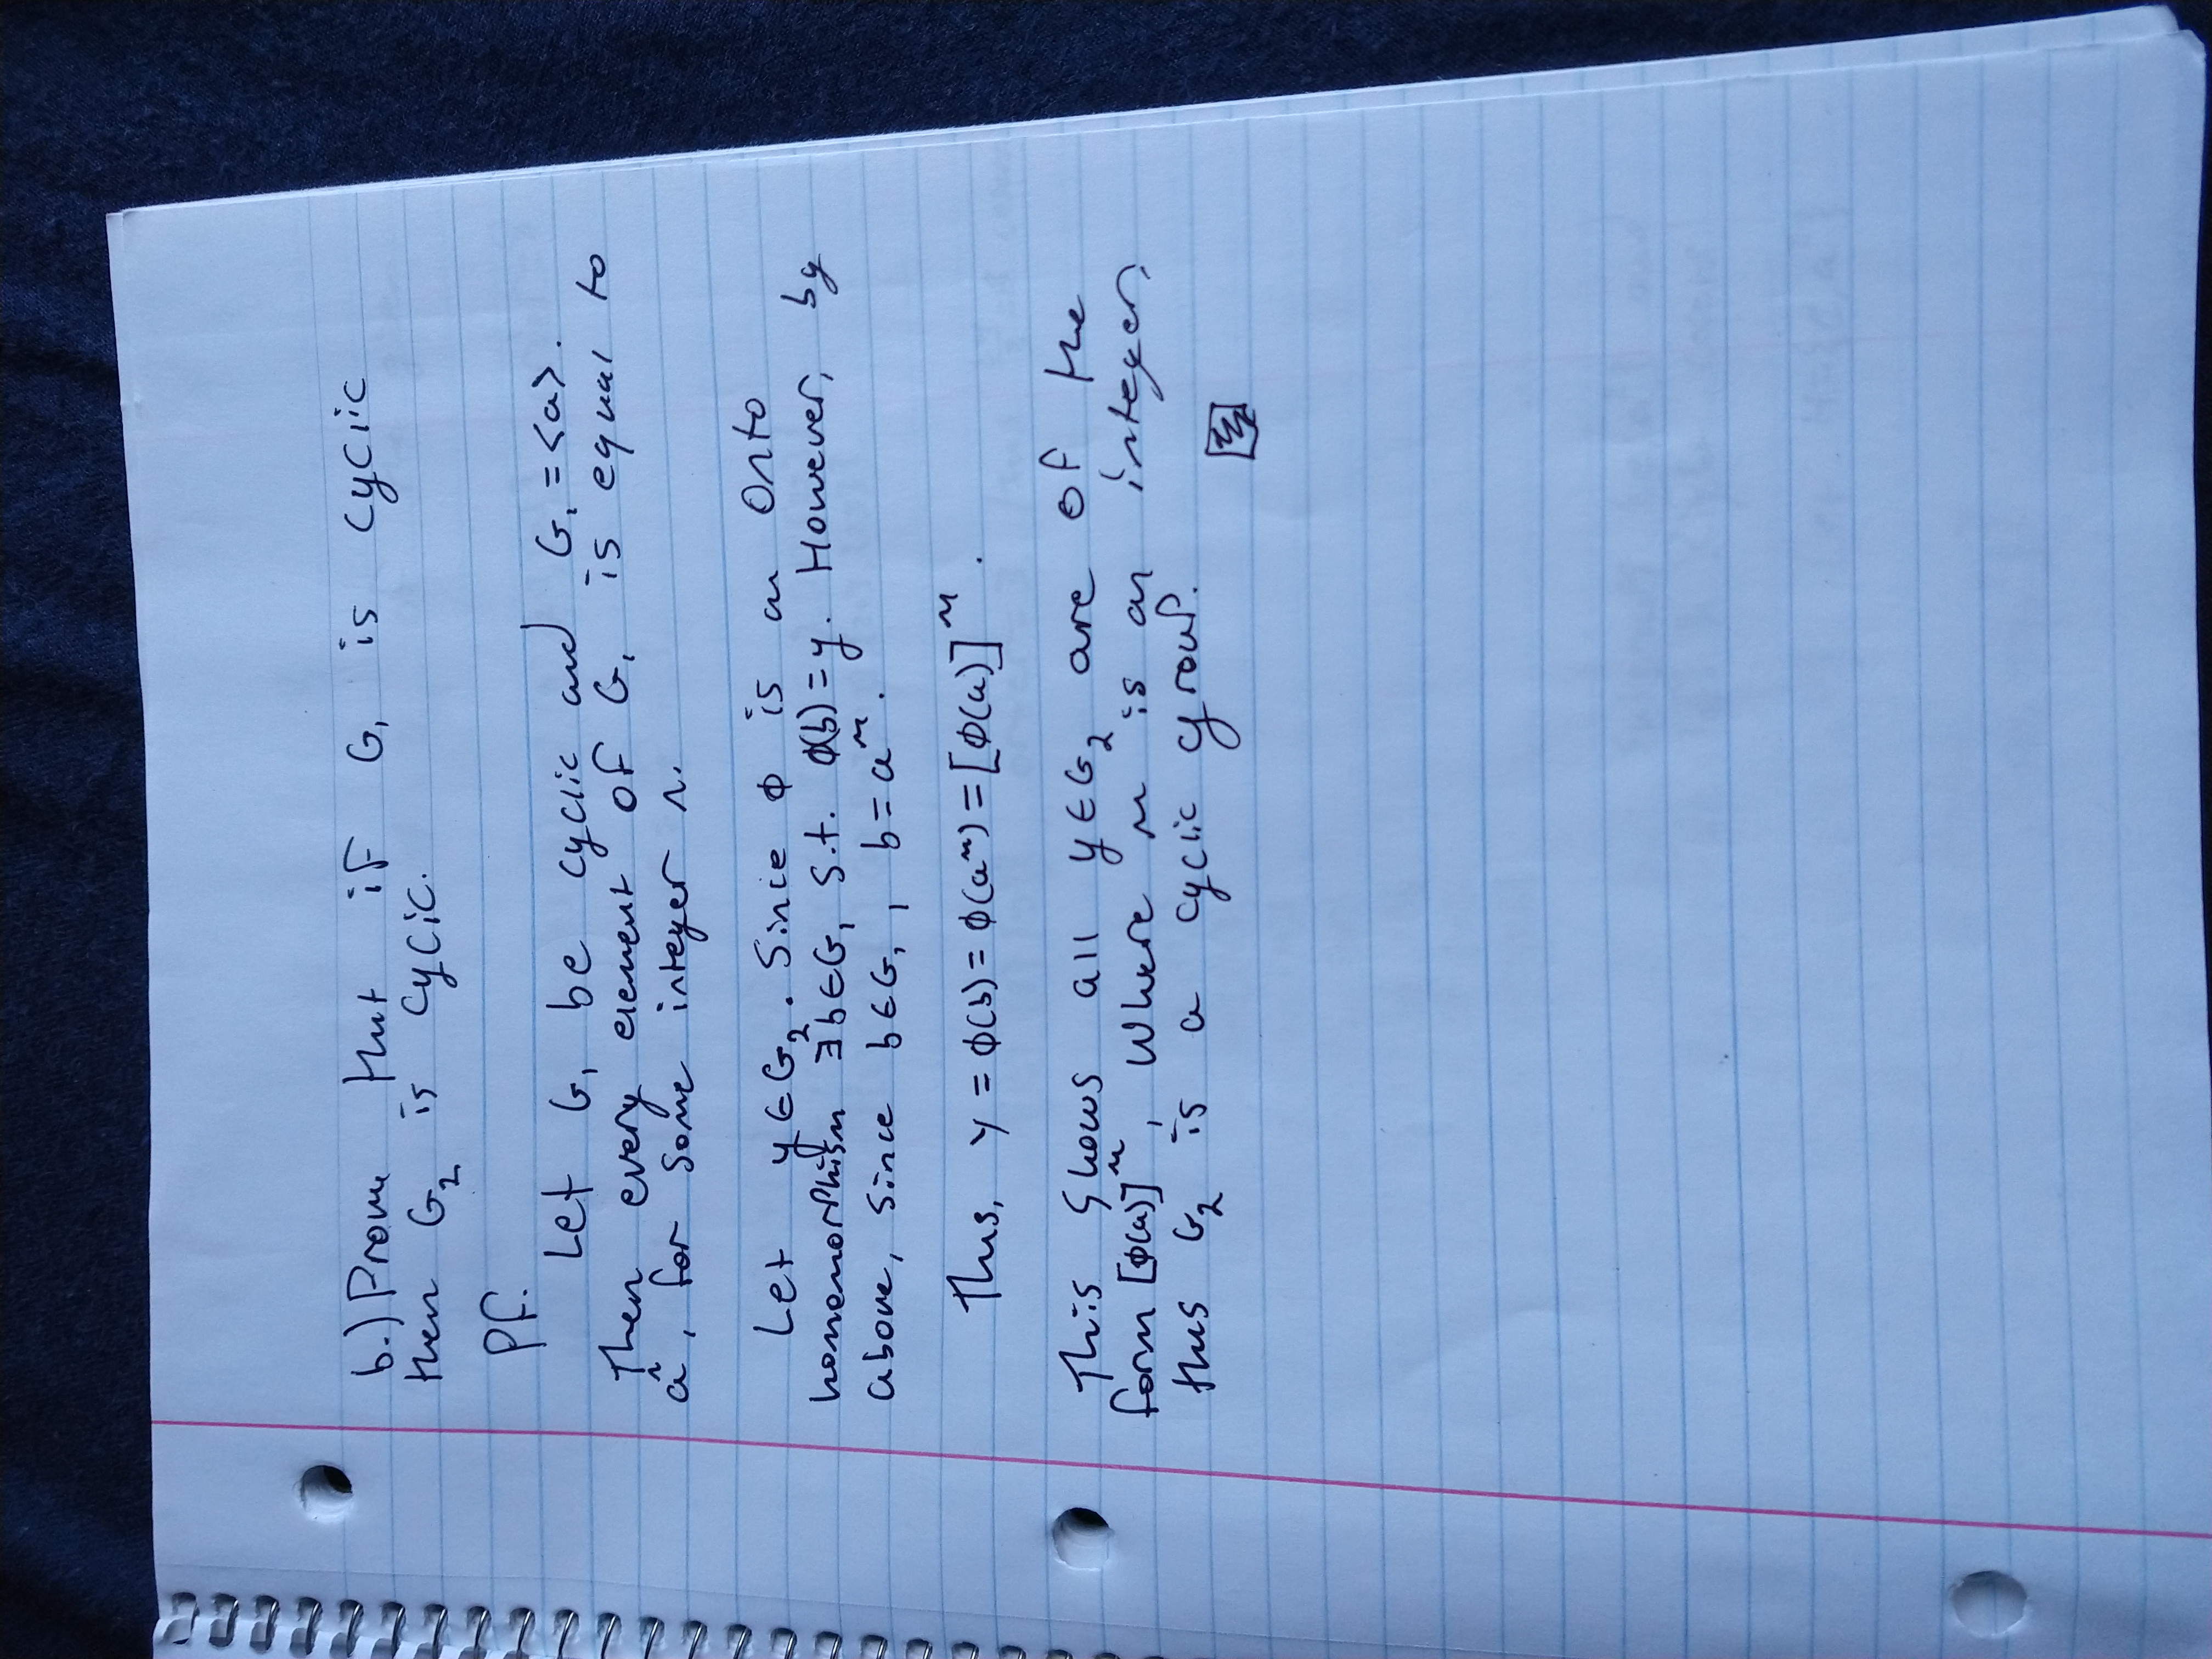 b.) Prove that if G₁ is cyclic
then G₂ is cyclic.
Pf.
Let G₁ be cyclic and G₁ = <a>.
Then every element of G₁ is equal to
aⁿ, for some integer n.
Let y ∈ G₂. Since ϕ is an onto
homomorphism ∃ b ∈ G₁ s.t. ϕ(b) = y. However, by
above, since b ∈ G₁, b = aⁿ.
Thus, y = ϕ(b) = ϕ(aⁿ) = [ϕ(a)]ⁿ.
This shows all y ∈ G₂ are of the
form [ϕ(a)]ⁿ, where n is an integer,
thus G₂ is a cyclic group.